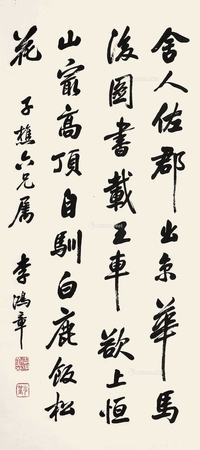 舍人佐郡出京華馬
後圖書載五車欲上恒
山最高頂自馴白鹿飯松
花
子樵六兄屬
李鴻章